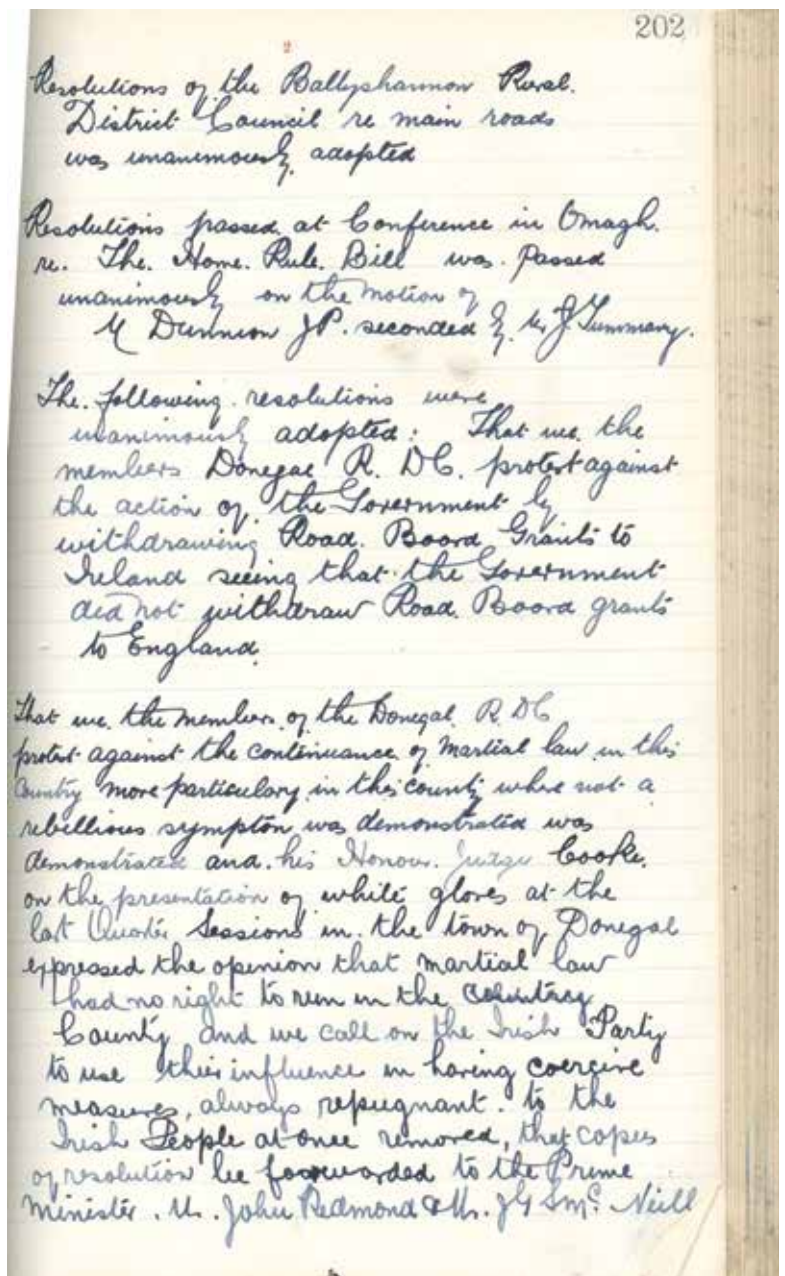 202
2
Resolutions of the Ballyshannon Rural.
District Council re main roads
was unanimously adopted
Resolutions passed at Conference in Omagh.
re. The. Home. Rule. Bill was. passed
unanimously on the motion of
M Dunnion JP. seconded by Mr J Timmony.
The following resolutions were
unanimously adopted: That we the
members Donegal R. DC. protest against
the action of the Government by
withdrawing Road. Board Grants to
Ireland seeing that the Government
did not withdraw Road Board grants
to England.
That we the members of the Donegal R DC
protest against the continuance of martial law in this
Country more particulary in this county where not a
rebellious sympton was demonstrated was
demonstrated and his Honour Judge Cooke.
on the presentation of white gloves at the
last Quarter Sessions in the town of Donegal
expressed the opinion that martial law
had no right to run in the country
County and we call on the Irish Party
to use their influence in having coercive
measures, always repugnant to the
Irish People at once removed, that copies
of resolution be forwarded to the Prime
Minister. Mr. John Redmond & Mr. J G S Mc Neill